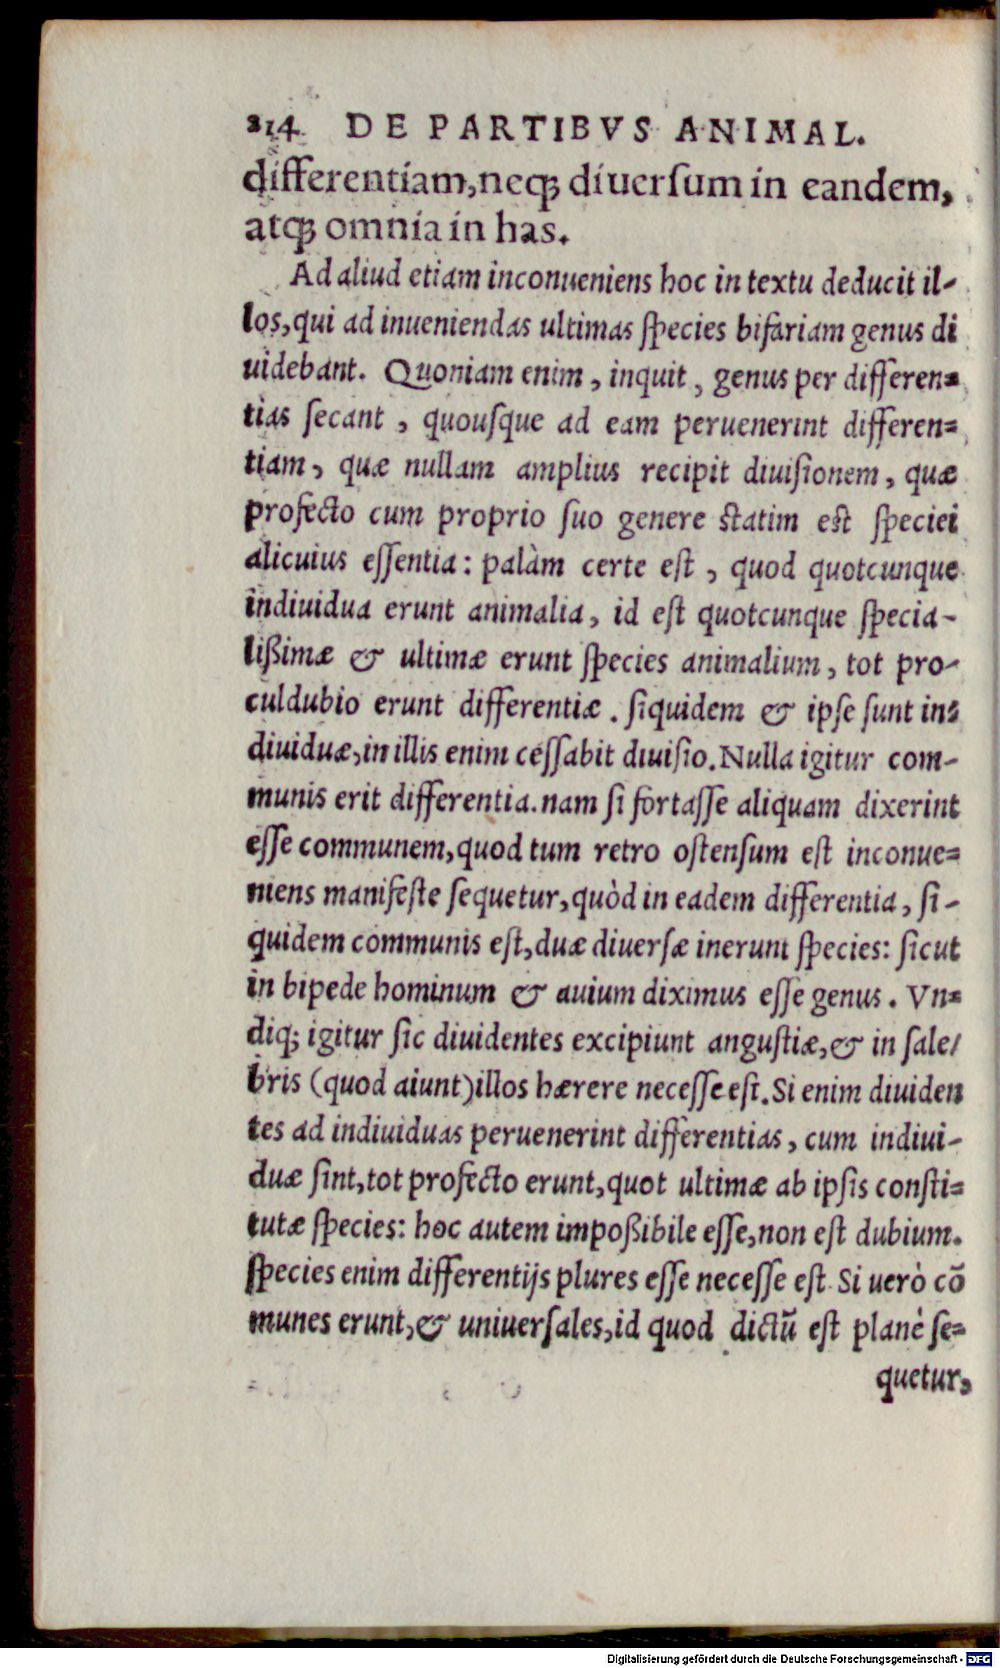 214 DE PARTIBVS ANIMAL.
differentiam, neq; diuersum in eandem,
atq; omnia in has.
Ad aliud etiam inconueniens hoc in textu deducit il-
los, qui ad inueniendas ultimas species bifariam genus di
uidebant. Quoniam enim, inquit, genus per differen=
tias secant, quousque ad eam peruenerint differen=
tiam, quæ nullam amplius recipit diuisionem, quæ
profecto cum proprio suo genere statim est speciei
alicuius essentia: palàm certe est, quod quotcunque
indiuidua erunt animalia, id est quotcunque specia-
lißimæ & ultimæ erunt species animalium, tot pro-
culdubio erunt differentiæ. siquidem & ipse sunt in=
diuiduæ, in illis enim cessabit diuisio. Nulla igitur com-
munis erit differentia. nam si fortasse aliquam dixerint
esse communem, quod tum retro ostensum est inconue=
niens manifeste sequetur, quòd in eadem differentia, si-
quidem communis est, duæ diuersæ inerunt species: sicut
in bipede hominum & auium diximus esse genus. Vn=
diq; igitur sic diuidentes excipiunt angustiæ, & in sale/
bris (quod aiunt) illos hærere necesse est. Si enim diuiden
tes ad indiuiduas peruenerint differentias, cum indiui-
duæ sint, tot profecto erunt, quot ultimæ ab ipsis consti=
tutæ species: hoc autem impoßibile esse, non est dubium.
species enim differentijs plures esse necesse est. Si uerò cō
munes erunt, & uniuersales, id quod dictū est planè se=
quetur,
Digitalisierung gefördert durch die Deutsche Forschungsgemeinschaft - DFG